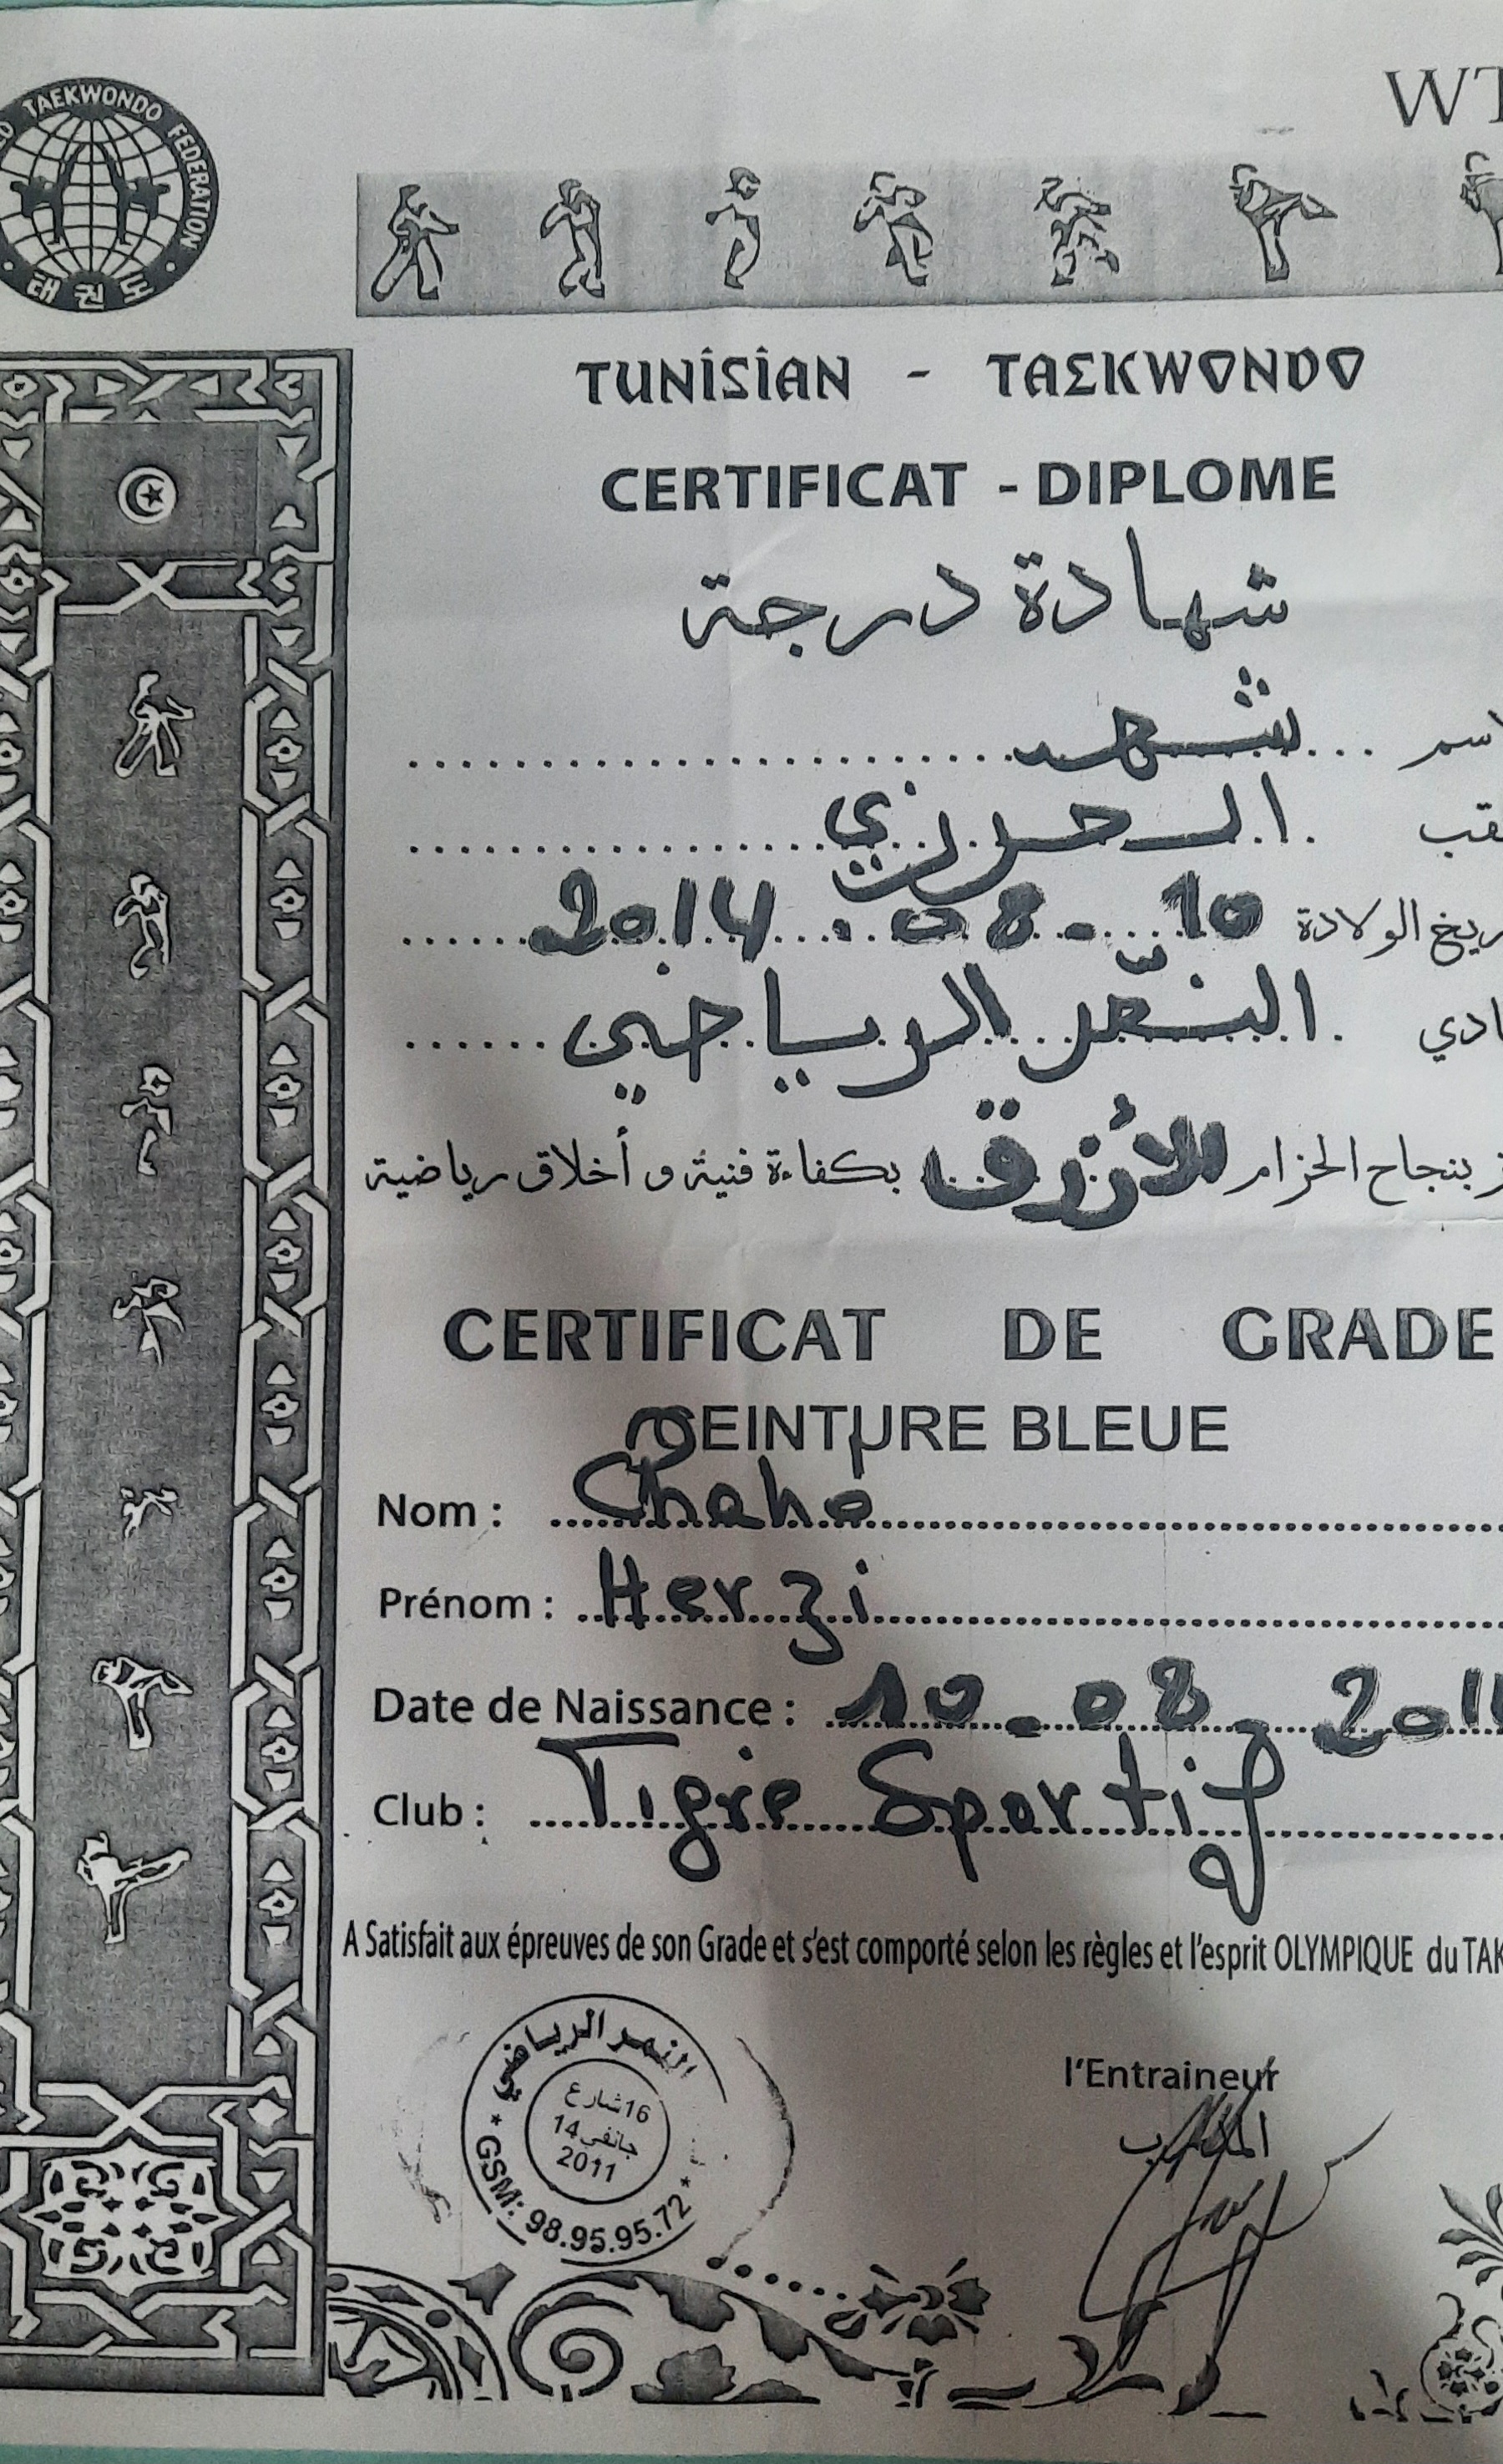 TAEKWONDO FEDERATION
태권도
WT
TUNISIAN - TAEKWONDO
CERTIFICAT - DIPLOME
شهادة درجة
شهد
الحرزي
10 - 08 - 2014
النمر الرياضي
بنجاح الحزام الأزرق بكفاءة فنية و أخلاق رياضية
CERTIFICAT DE GRADE
CEINTURE BLEUE
Nom : Chahd
Prénom : Herzi
Date de Naissance : 10 - 08 - 201
Club : Tigre Sportif
A Satisfait aux épreuves de son Grade et s'est comporté selon les règles et l'esprit OLYMPIQUE du TAK
النمر الرياضي
16 شارع
14 جانفي
2011
* GSM: 98.95.95.72 *
l'Entraineur
المدرب